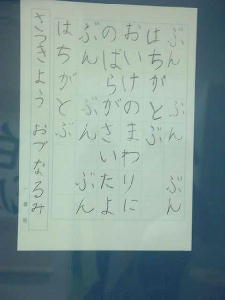 ぶん ぶん ぶん
はちがとぶ
おいけのまわりに
のばらがさいたよ
ぶん ぶん ぶん
はちがとぶ
さつきよう おづなるみ